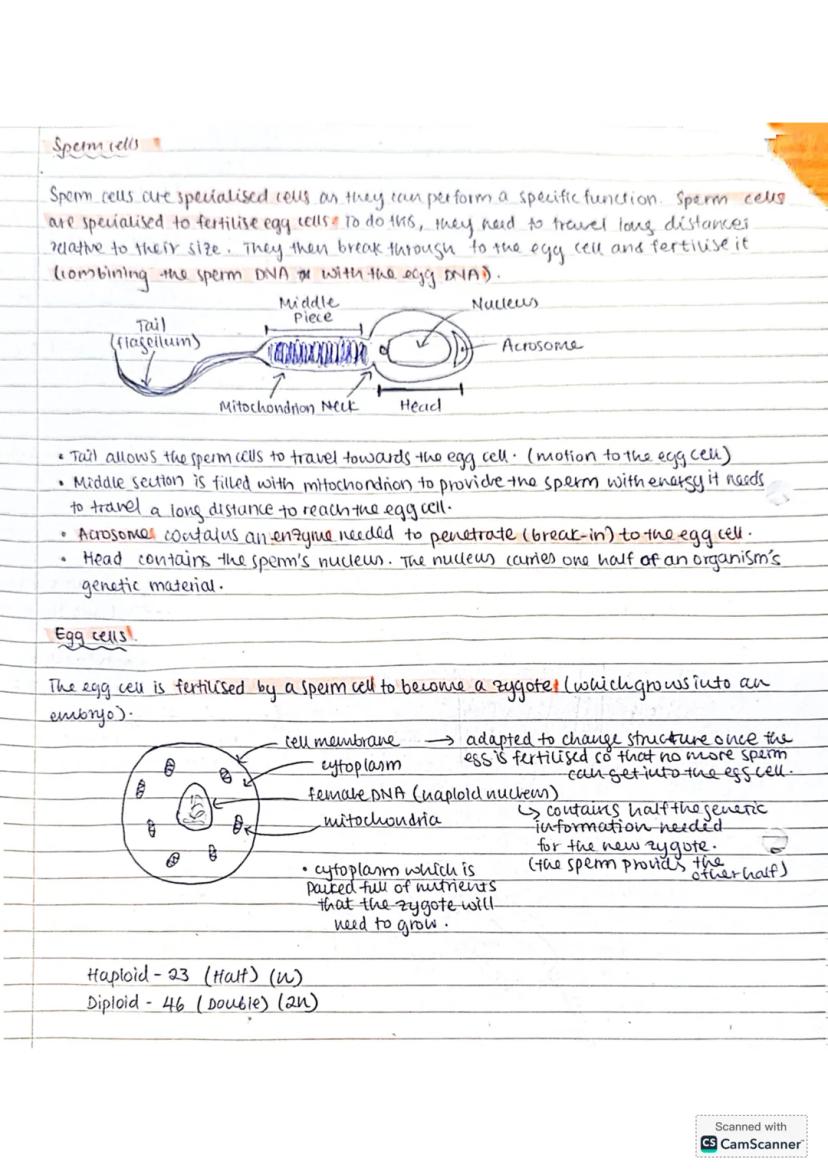 Sperm cells
Sperm cells are specialised cells as they can perform a specific function. Sperm cells
are specialised to fertilise egg cells. To do this, they need to travel long distances
relative to their size. They then break through to the egg cell and fertilise it
(combining the sperm DNA with the egg DNA).
Middle
Piece
Nucleus
Tail
(flagellum)
Acrosome
Mitochondrion Neck Head
• Tail allows the sperm cells to travel towards the egg cell. (motion to the egg cell)
• Middle section is filled with mitochondrion to provide the sperm with energy it needs
to travel a long distance to reach the egg cell.
• Acrosomes contains an enzyme needed to penetrate (break-in) to the egg cell.
• Head contains the sperm's nucleus. The nucleus carries one half of an organism's
genetic material.
Egg cells
The egg cell is fertilised by a sperm cell to become a zygote (which grows into an
embryo).
cell membrane → adapted to change structure once the
egg is fertilised so that no more sperm
can get into the egg cell.
cytoplasm
female DNA (haploid nucleus)
↳ contains half the genetic
information needed
for the new zygote.
(the sperm provides the
other half)
mitochondria
• cytoplasm which is
packed full of nutrients
that the zygote will
need to grow.
Haploid - 23 (Half) (n)
Diploid - 46 (Double) (2n)
Scanned with
CS CamScanner